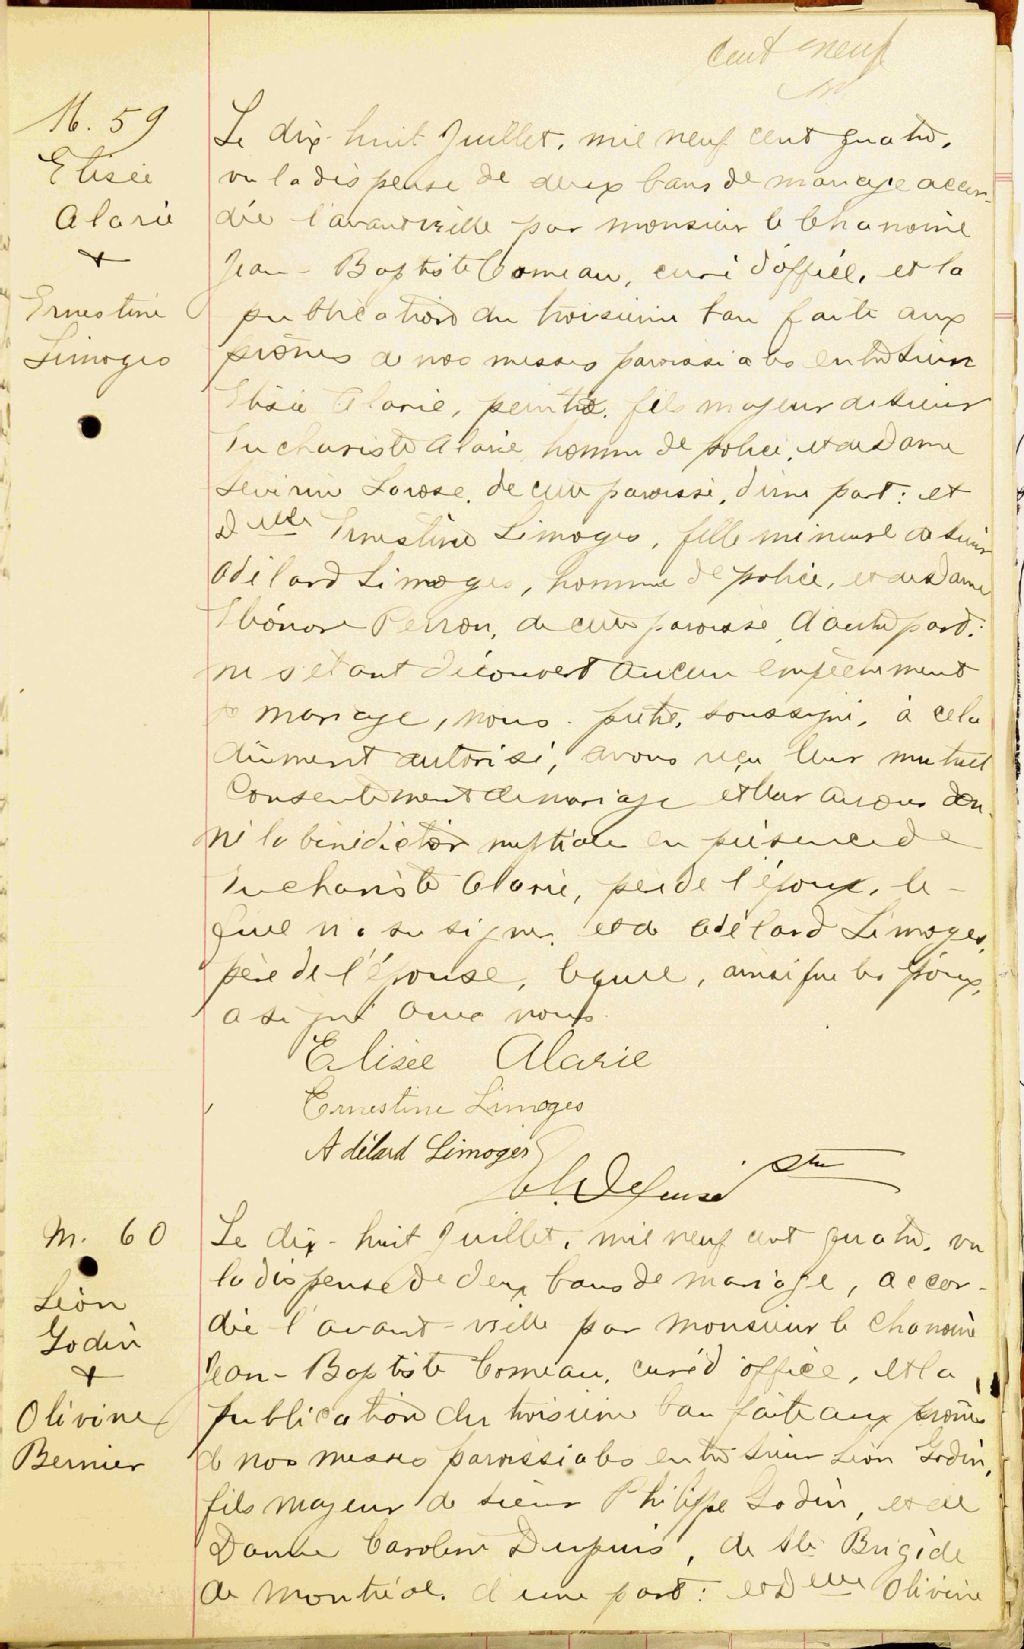 cent neuf
M. 59
Elisée
Alarie
+
Ernestine
Limoges
Le dix-huit Juillet, mil neuf cent quatre,
vu la dispense de deux bans de mariage accor-
dée l'avant veille par monsieur le Chanoine
Jean-Baptiste Comeau, curé d'office, et la
publication du troisième ban faite aux
prônes de nos messes paroissiales entre Sieur
Elisée Alarie, peintre, fils majeur de Sieur
Euchariste Alarie homme de police, et de Dame
Séverine Larose, de cette paroisse, d'une part: et
Delle Ernestine Limoges, fille mineure de Sieur
Adélard Limoges, homme de police, et de Dame
Eléonore Perron, de cette paroisse d'autre part:
ne s'étant découvert aucun empêchement
de mariage, nous prêtre, soussigné, à cela
dûment autorisé, avons reçu leur mutuel
Consentement de mariage et leur avons don-
né la bénédiction nuptiale en présence de
Euchariste Alarie, père de l'époux, le-
quel n'a su signer, et de Adélard Limoges,
père de l'épouse, lequel, ainsi que les époux,
a signé avec nous.
Elisée Alarie
Ernestine Limoges
Adélard Limoges
ptre
M. 60
Léon
Godin
+
Olivine
Bernier
Le dix-huit Juillet, mil neuf cent quatre, vu
la dispense de deux bans de mariage, accor-
dée l'avant-veille par monsieur le Chanoine
Jean-Baptiste Comeau, curé d'office, et la
publication du troisième ban faite aux prônes
de nos messes paroissiales entre Sieur Léon Godin,
fils majeur de Sieur Philippe Godin, et de
Dame Caroline Dupuis, de Ste Brigide
de Montréal, d'une part: et Delle Olivine